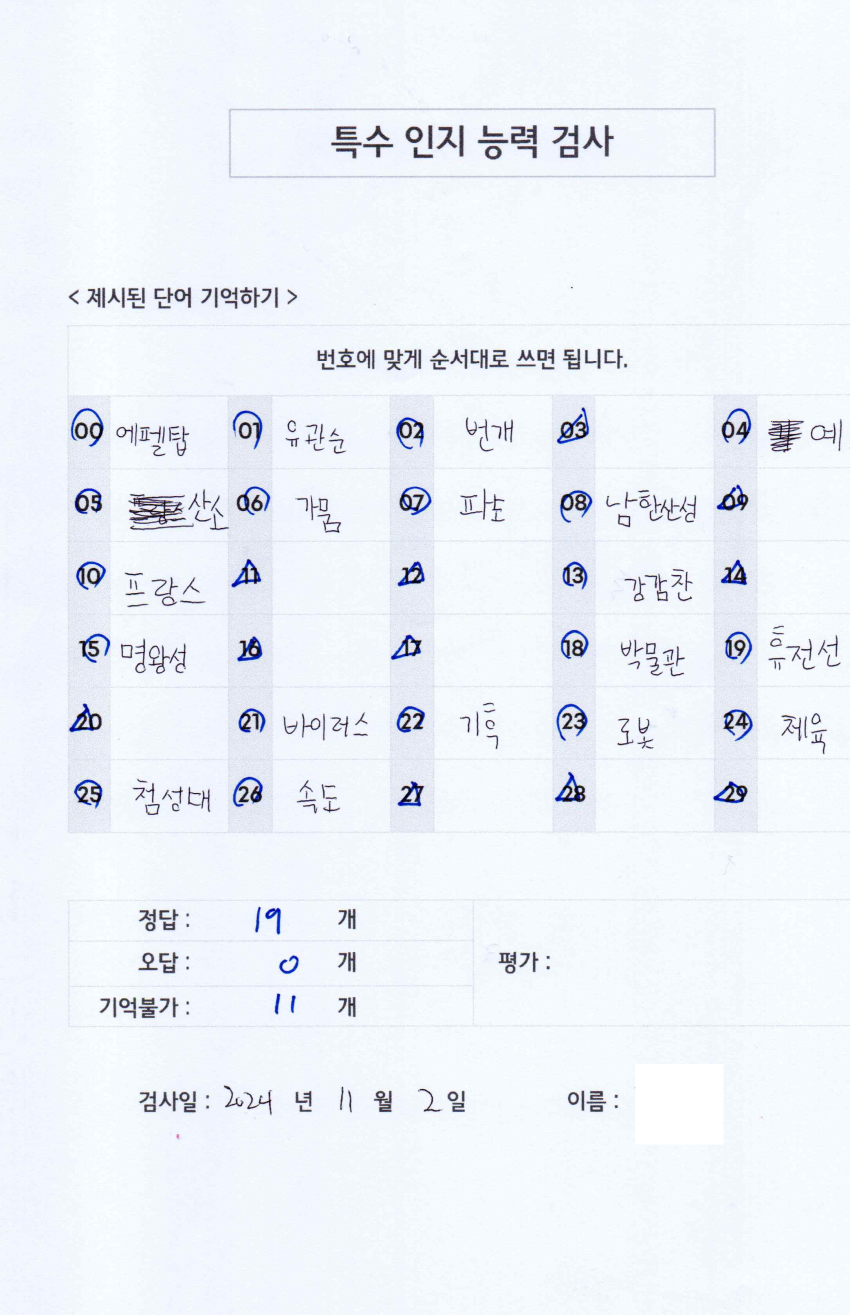 특수 인지 능력 검사
< 제시된 단어 기억하기 >
번호에 맞게 순서대로 쓰면 됩니다.
00 에펠탑 01 유관순 02 번개 03 04 예
05 산소 06 가뭄 07 파도 08 남한산성 09
10 프랑스 11 12 13 강감찬 14
15 명왕성 16 17 18 박물관 19 휴전선
20 21 바이러스 22 기흑 23 로봇 24 체육
25 첨성대 26 속도 27 28 29
정답 : 19 개
오답 : 0 개
평가 :
기억불가 : 11 개
검사일 : 2024 년 11 월 2 일 이름 :